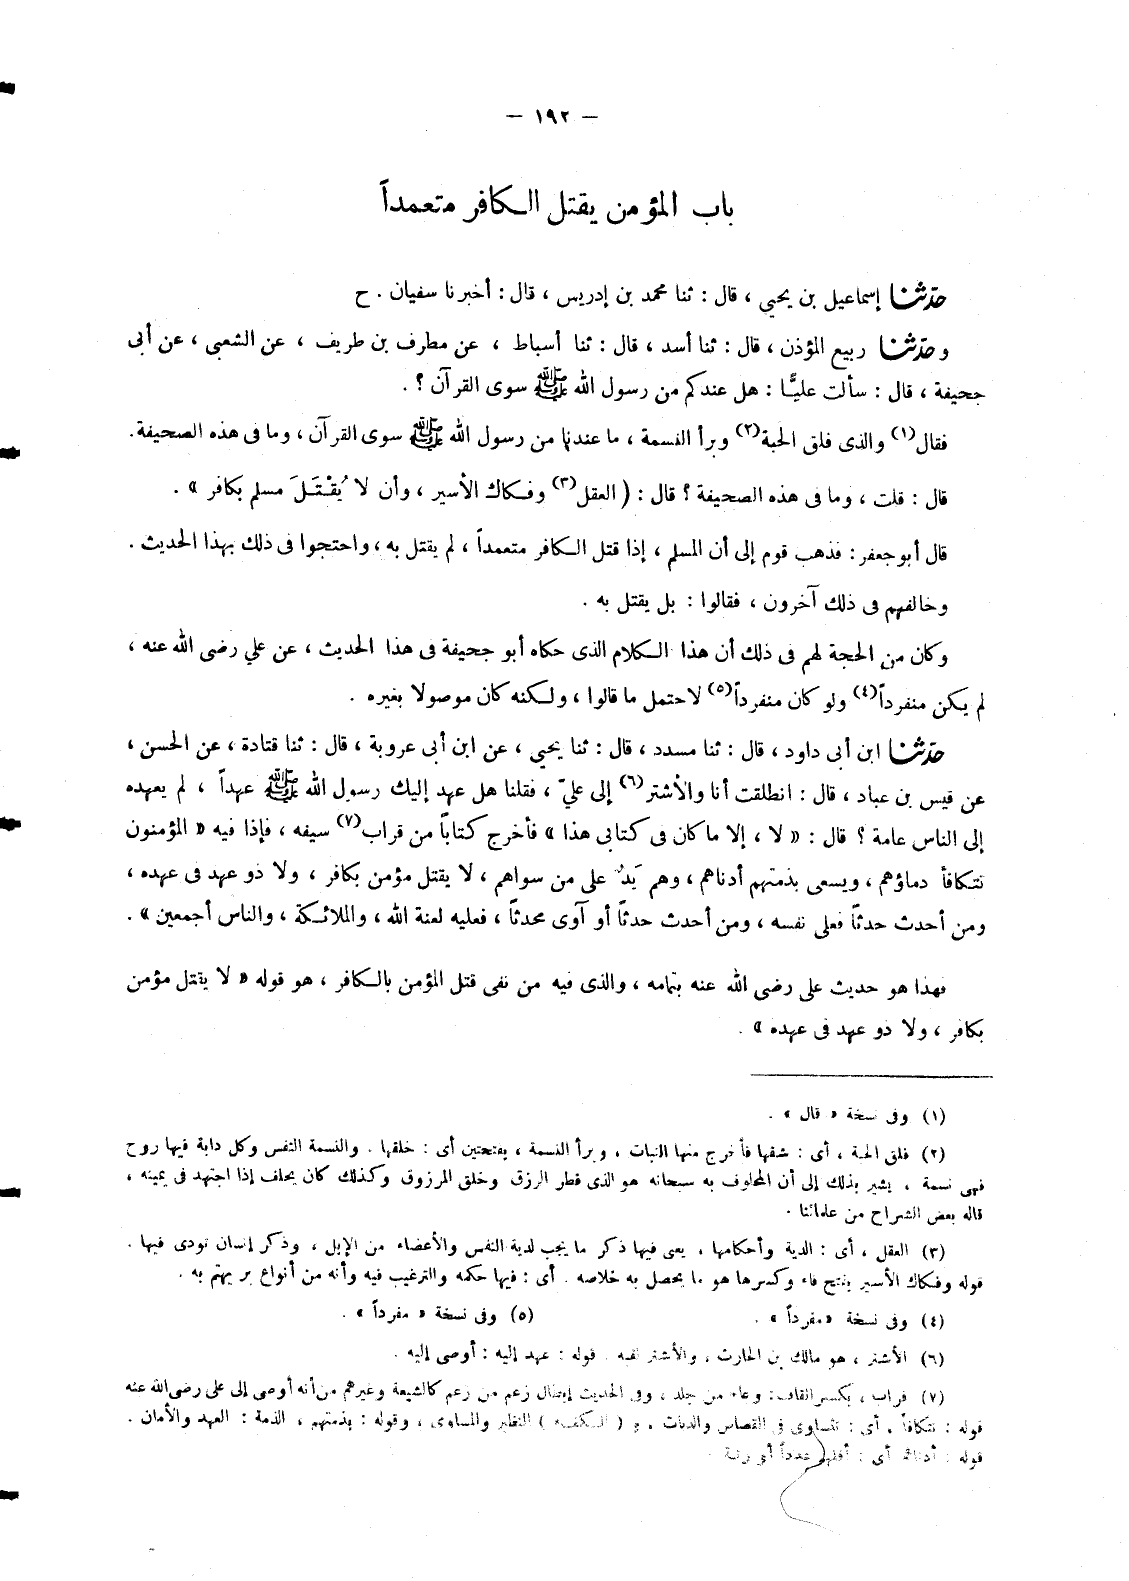 — ١٩٢ —
باب المؤمن يقتل الكافر متعمداً
حدّثنا إسماعيل بن يحيى ، قال : ثنا محمد بن إدريس ، قال : أخبرنا سفيان . ح
وحدّثنا ربيع المؤذن ، قال : ثنا أسد ، قال : ثنا أسباط ، عن مطرف بن طريف ، عن الشعبى ، عن أبى
جحيفة ، قال : سألت عليًّا : هل عندكم من رسول الله ﷺ سوى القرآن ؟ .
فقال(١) والذى فلق الحبة(٢) وبرأ النسمة ، ما عندنا من رسول الله ﷺ سوى القرآن ، وما فى هذه الصحيفة .
قال : قلت ، وما فى هذه الصحيفة ؟ قال : ( العقل(٣) وفكاك الأسير ، وأن لا يُقْتَلَ مسلم بكافر » .
قال أبو جعفر : فذهب قوم إلى أن المسلم ، إذا قتل الكافر متعمداً ، لم يقتل به ، واحتجوا فى ذلك بهذا الحديث .
وخالفهم فى ذلك آخرون ، فقالوا : بل يقتل به .
وكان من الحجة لهم فى ذلك أن هذا الكلام الذى حكاه أبو جحيفة فى هذا الحديث ، عن علي رضى الله عنه ،
لم يكن منفرداً(٤) ولو كان منفرداً(٥) لاحتمل ما قالوا ، ولكنه كان موصولا بغيره .
حدّثنا ابن أبى داود ، قال : ثنا مسدد ، قال : ثنا يحيى ، عن ابن أبى عروبة ، قال : ثنا قتادة ، عن الحسن ،
عن قيس بن عباد ، قال : انطلقت أنا والأشتر(٦) إلى عليّ ، فقلنا هل عهد إليك رسول الله ﷺ عهداً ، لم يعهده
إلى الناس عامة ؟ قال : « لا ، إلا ما كان فى كتابى هذا » فأخرج كتاباً من قراب(٧) سيفه ، فإذا فيه « المؤمنون
تتكافأ دماؤهم ، ويسعى بذمتهم أدناهم ، وهم يَدٌ على من سواهم ، لا يقتل مؤمن بكافر ، ولا ذو عهد فى عهده ،
ومن أحدث حدثاً فعلى نفسه ، ومن أحدث حدثاً أو آوى محدثاً ، فعليه لعنة الله ، والملائكة ، والناس أجمعين » .
فهذا هو حديث على رضى الله عنه بتمامه ، والذى فيه من نفى قتل المؤمن بالكافر ، هو قوله « لا يقتل مؤمن
بكافر ، ولا ذو عهد فى عهده » .
(١) وفى نسخة « قال » .
(٢) فلق الحبة ، أى : شقها فأخرج منها النبات ، وبرأ النسمة ، بفتحتين أى : خلقها . والنسمة النفس وكل دابة فيها روح
فهى نسمة ، يشير بذلك إلى أن المحلوف به سبحانه هو الذى فطر الرزق وخلق المرزوق وكذلك كان يحلف إذا اجتهد فى يمينه ،
قاله بعض الشراح من علمائنا .
(٣) العقل ، أى : الدية وأحكامها ، يعى فيها ذكر ما يجب لدية النفس والأعضاء من الإبل ، وذكر إنسان تودى فيها .
قوله وفكاك الأسير بفتح فاء وكسرها هو ما يحصل به خلاصه . أى : فيها حكمه والترغيب فيه وأنه من أنواع بر يهتم به .
(٤) وفى نسخة « مفرداً » . (٥) وفى نسخة « مفرداً » .
(٦) الأشتر ، هو مالك بن الحارث ، والأشتر لقبه . قوله : عهد إليه : أوصى إليه .
(٧) قراب ، بكسر القاف : وعاء من جلد ، وفى الحديث إبطال زعم من زعم كالشيعة وغيرهم من أنه أوصى إلى على رضى الله عنه
قوله : تتكافأ . أى : تتساوى فى القصاص والديات ، و ( الكفء ) النظير والمساوى ، وقوله : بذمتهم ، الذمة : العهد والأمان .
قوله : أدناهم أى : أقلهم عدداً أو رتبة .